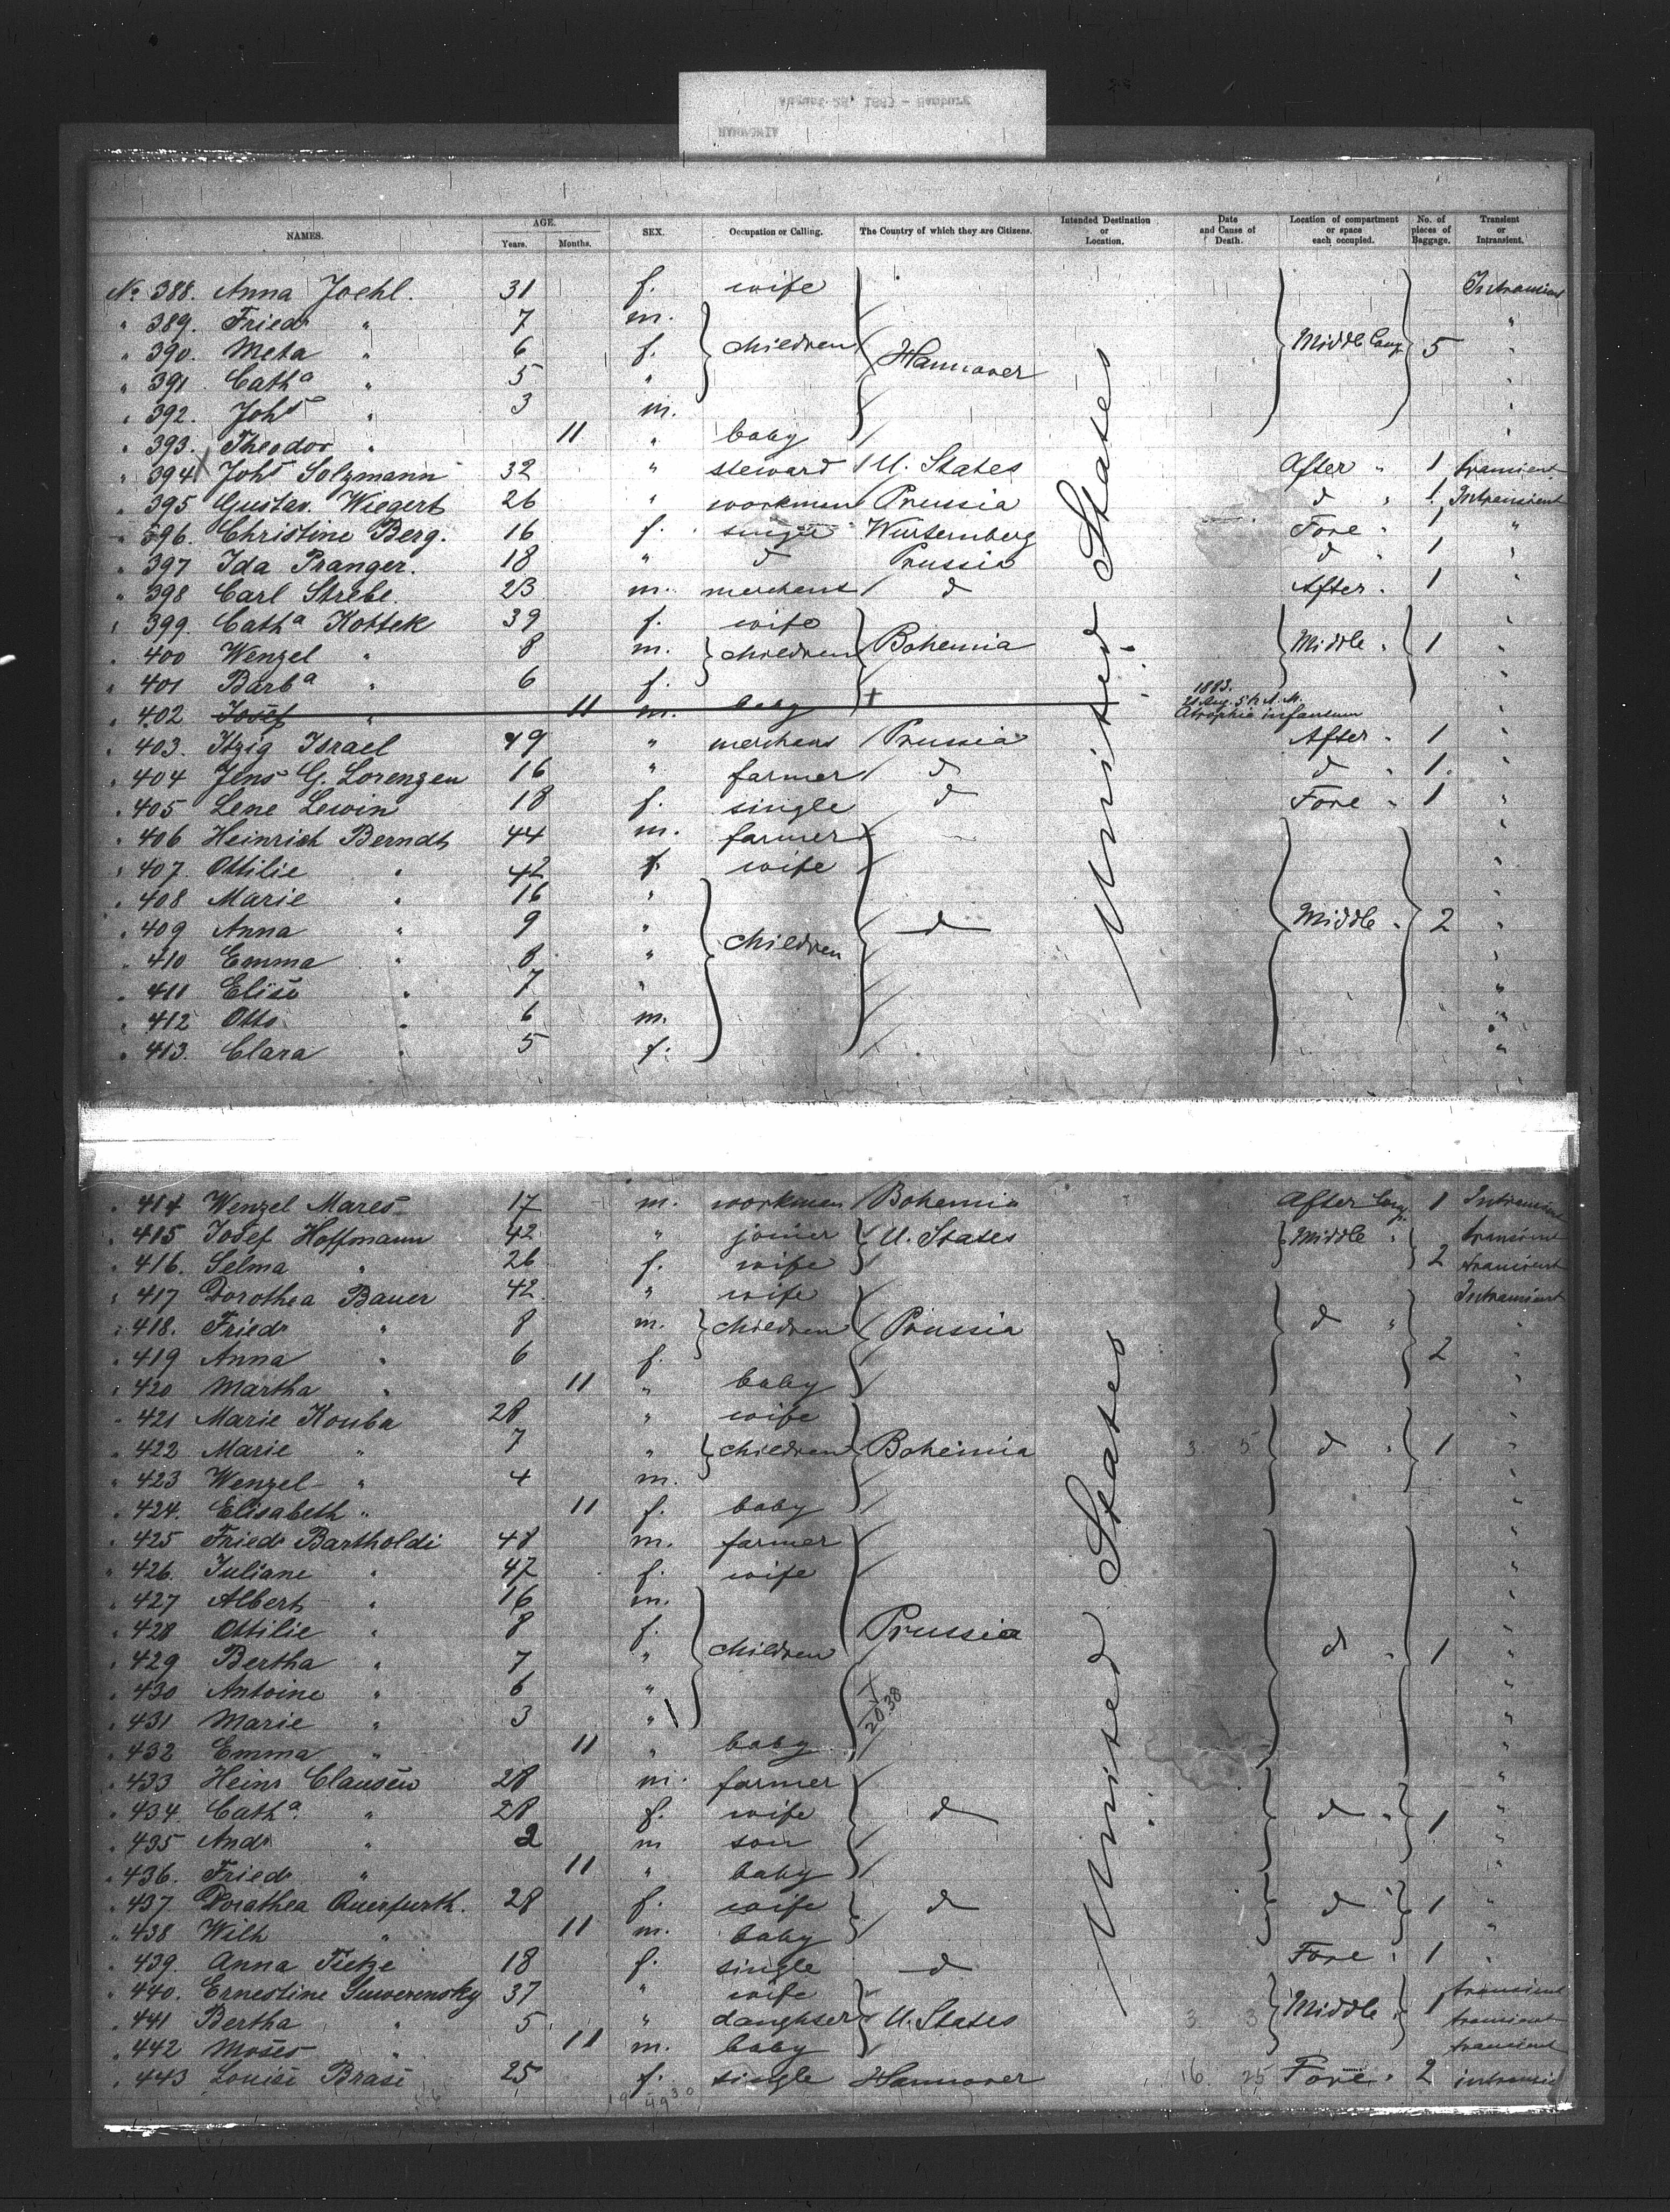 NAMES. AGE. Years. Months. SEX. Occupation or Calling. The Country of which they are Citizens. Intended Destination or Location. Date and Cause of Death. Location of compartment or space each occupied. No. of pieces of Baggage. Transient or Intransient.
No 388. Anna Joehl. 31 f. wife Intransient
" 389. Friedr " 7 m. "
" 390. Meta " 6 f. children Hannover Middle Comp 5 "
" 391 Catha " 5 " "
" 392. Johs " 3 m. "
" 393. Theodor " 11 " baby "
" 394 Johs Salzmann 32 " steward U. States After " 1 transient
" 395 Gustav. Wiegert 26 " workman Prussia d " 1 Intransient
" 396. Christine Berg. 16 f. single Würtemberg Fore " 1 "
" 397 Ida Pranger. 18 " d Prussia d " 1 "
" 398 Carl Strebe. 23 m. merchant d After " 1 "
" 399. Catha Kottek 39 f. wife "
" 400 Wenzel " 8 m. children Bohemia Middle " 1 "
" 401 Barba " 6 f. "
" 402 Josef " 11 m. baby + 1883. 21 Aug. 5 h A.M. Atrophia infantum "
" 403. Itzig Israel 49 " merchant Prussia After " 1 "
" 404 Jens G. Lorenzen 16 " farmer d d " 1. "
" 405 Lene Lewin 18 f. single d Fore " 1 "
" 406 Heinrich Berndt 44 m. farmer "
" 407. Ottilie " 42 f. wife "
" 408 Marie " 16 " "
" 409 Anna " 9 " children d Middle " 2 "
" 410 Emma " 8 " "
" 411 Elise " 7 " "
" 412 Otto " 6 m. "
" 413. Clara " 5 f. "
United States
" 414 Wenzel Mares 17 m. workman Bohemia After Comp. 1 Intransient
" 415 Josef Hoffmann 42 " joiner U. States Middle " transient
" 416. Selma " 26 f. wife 2 transient
" 417 Dorothea Bauer 42. " wife Intransient
" 418. Friedr " 8 m. children Prussia d " "
" 419 Anna " 6 f. 2 "
" 420 Martha " 11 " baby "
" 421 Marie Kouba 28 " wife "
" 422 Marie " 7 " children Bohemia 3 5 d " 1 "
" 423 Wenzel " 4 m. "
" 424. Elisabeth " 11 f. baby "
" 425 Friedr Bartholdi 48 m. farmer "
" 426. Juliane " 47 f. wife "
" 427 Albert " 16 m. "
" 428 Ottilie " 8 f. Prussia "
" 429 Bertha " 7 " children d " 1 "
" 430 Antoine " 6 " "
" 431 Marie " 3 " 20.38 "
" 432 Emma " 11 " baby "
" 433 Heinr Clausen 28 m. farmer "
" 434. Catha " 28 f. wife d d " 1 "
" 435 Andr " 2 m son "
" 436. Friedr " 11 " baby "
" 437. Dorathea Querfurth. 28 f. wife d d " 1 "
" 438 Wilh " 11 m. baby "
" 439. Anna Tietze 18 f. single d Fore " 1 "
" 440. Ernestine Suwerensky 37 " wife transient
" 441 Bertha " 5 " daughter U. States 3 3 Middle " 1 transient
" 442 Moses " 11 m. baby transient
" 443 Louise Brase 25 f. single Hannover 16 25 Fore " 2 intransient
United States